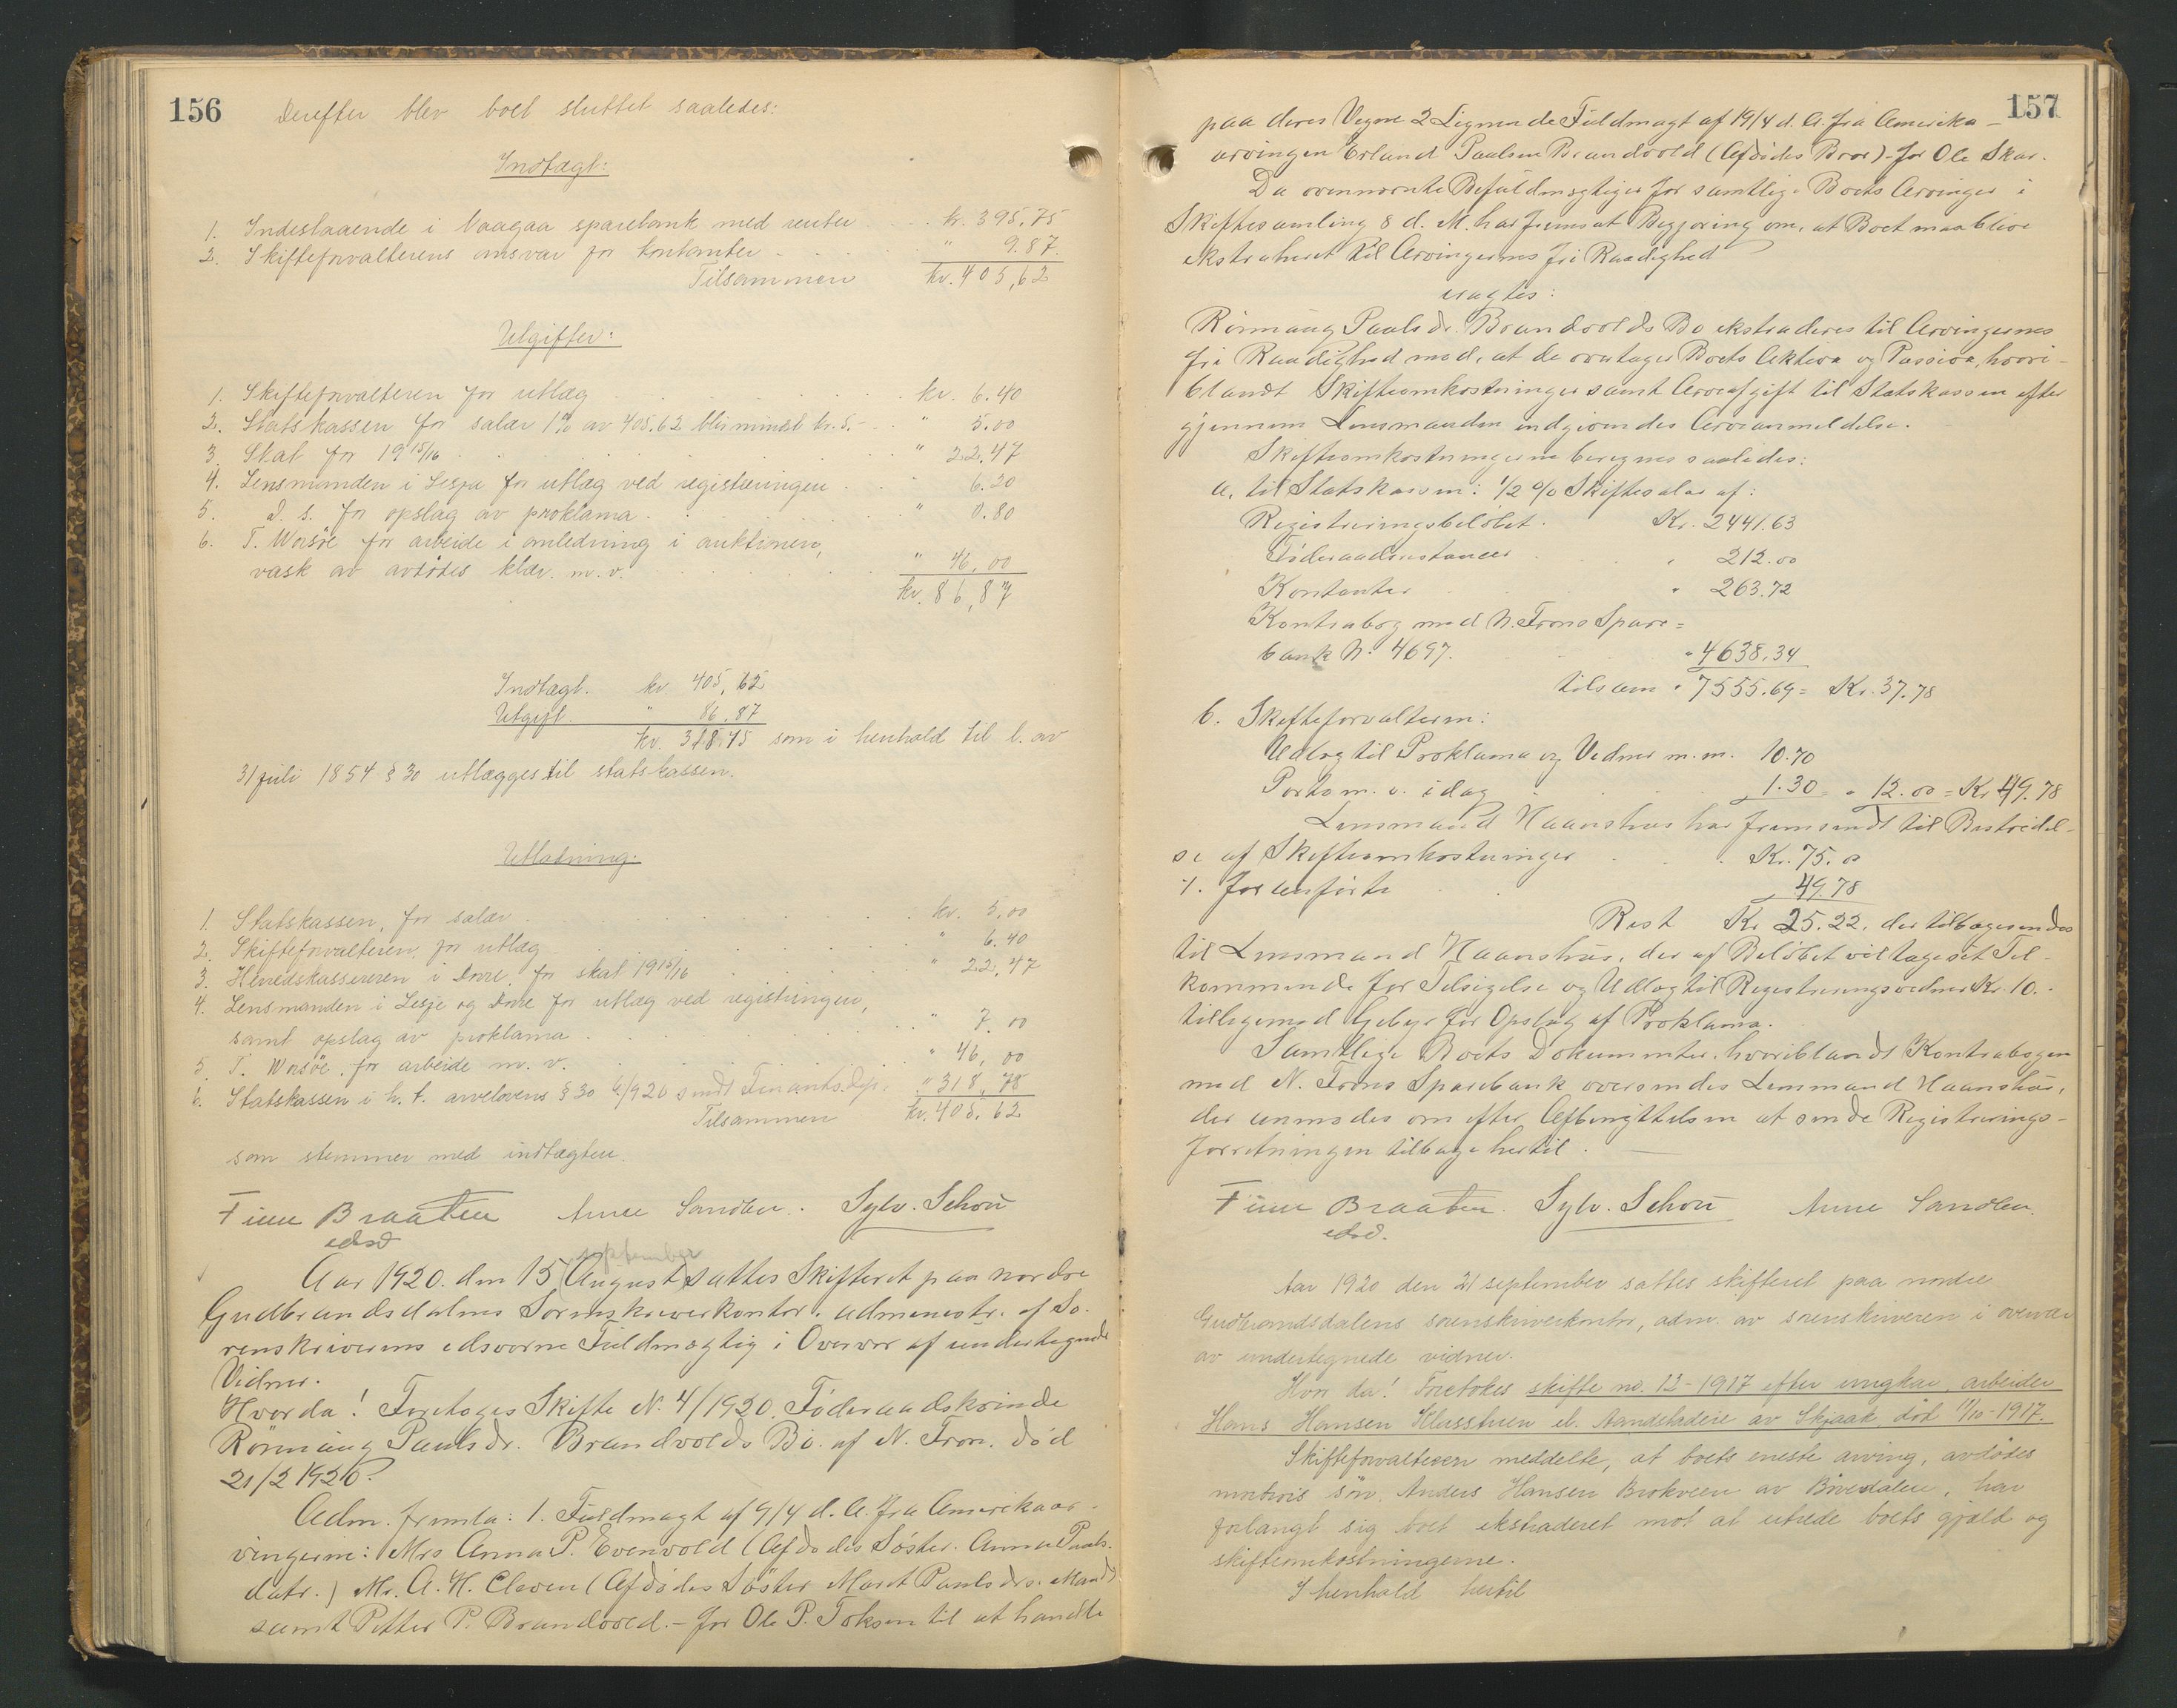 156
Derefter blev boet sluttet saaledes:
Indtægt:
1. Indestaaende i Vaagaa sparebank med renter kr. 395,75
2. Skifteforvalterens ansvar for kontanter " 9.87.
Tilsammen kr. 405,62
Utgifter:
1. Skifteforvalteren for utlæg kr. 6.40
2. Statskassen for salær 1% av 405.62 blir mindst kr. 5.- " 5.00
3 Skat for 1915/16 " 22,47
4. Lensmanden i Lesja for utlæg ved registreringen " 6.20
5. D. s. for opslag av proklama " 0.80
6. T. Worsöe for arbeide i anledning i auktionen,
vask av avdødes klær. m. v. " 46,00
kr. 86,87
Indtægt. kr 405,62
Utgift. " 86,87
kr. 318.75 som i henhold til l. av
31 juli 1854 § 30 utlægges til statskassen.
Utlodning:
1. Statskassen, for salær kr. 5,00
2. Skifteforvalteren, for utlæg " 6.40
3. Herredskassereren i Dovre, for skat 1915/16 " 22,47
4. Lensmanden i Lesje og Dovre for utlæg ved registringen,
samt opslag av proklama " 7.00
5. T. Worsöe, for arbeide m. v. " 46,00
6. Statskassen i h. t. arvelovens § 30 6/920 sendt Finants.dep. " 318,75
Tilsammen kr. 405.62
som stemmer med indtægten.
Finn Braaten Anne Sandbu. Sylv. Schou
edsv
September
Aar 1920. den 15 (August) sattes Skifteret paa nordre
Gudbrandsdalens Sorenskriverkontor, administr. af So-
renskriverens edsvorne Fuldmægtig i Overvær af undertegnede
Vidner.
Hvorda! Foretoges Skifte N. 4/1920. Föderaadskvinde
Rönnaug Paulsdr. Brandvolds Bo. af N. Fron. död
21/2 1920.
Adm. fremla: 1. Fuldmagt af 9/4 d. A. fra Amerikaar-
vingerne: Mrs Anna P. Evenvold (Afdödes Söster. Anna Pauls-
datr.) Mr. A. H. Cleven (Afdödes Söster Marit Paulsdrs. Mand)
samt Petter P. Brandvold. - for Ole P. Toksen til at handle
157
paa deres Vegne 2 Lignende Fuldmagt af 19/4 d. A. fra Amerika-
arvingen Erland Paulsen Brandvold (Afdödes Bror) - for Ole Skar.
Da ovennevnte Befuldmægtiger for samtlige Boets Arvinger i
Skiftesamling 8 d. M. har fremsat Begjæring om, at Boet maa blive
ekstraheret til Arvingernes fri Raadighed
eragtes:
Rönnaug Paulsdr. Brandvolds Bo ekstraderes til Arvingernes
fri Raadighed mod, at de overtager Boets Aktiva og Passiva, hvori-
blandt Skifteomkostninger samt Arveafgift til Statskassen efter
gjennem Lensmanden indgivendes Arveanmeldelse.
Skifteomkostningerne beregnes saaledes:
a. til Statskassen: 1/2 % Skiftesalær af:
Registreringsbelöbet. Kr. 2441.63
Föderaadsrestancer " 212.00
Kontanter " 263.72
Kontrabog med N. Frons Spare=
bank N. 4697. " 4638.34
tilsam " 7555.69 = Kr. 37.78
b. Skifteforvalteren:
Udlæg til Proklama og Vidner m. m. 10.70
Porto m. v. i dag 1.30 = " 12.00 = Kr 49.78
Lensmand Haanshus har fremsendt til Bestridel-
se af Skifteomkostninger Kr. 75.0
÷. foranførte 49.78
Rest Kr 25.22, der tilbagesendes
til Lensmand Haanshus, der af Belöbet vil tage sit Til-
kommende for Tilsigelse og Udlæg til Registreringsvidner Kr. 10.-
tilligemed Gebyr for Opslag af Proklama.
Samtlige Boets Dokumenter, hvoriblandt Kontrabogen
med N. Frons Sparebank oversendes Lensmand Haanshus,
der anmodes om efter Afbenyttelsen at sende Registrerings-
forretningen tilbage hertil.
Finn Braaten. Sylv. Schou Anne Sandbu.
edsv.
Aar 1920 den 21 september sattes skifteret paa nordre
Gudbrandsdalens sorenskriverkontor, adm. av sorenskriveren i overvær
av undertegnede vidner.
Hvor da! Foretokes skifte no. 12-1917 efter ungkar, arbeider
Hans Hansen Klusstuen el. Aandstadeie av Skjaak, död 11/10-1917.
Skifteforvalteren meddelte, at boets eneste arving, avdødes
morbrors sön, Anders Hansen Brokveen av Bövedalen, har
forlangt sig boet ekstraderet mot at utrede boets gjæld og
skifteomkostningerne.
I henhold hertil